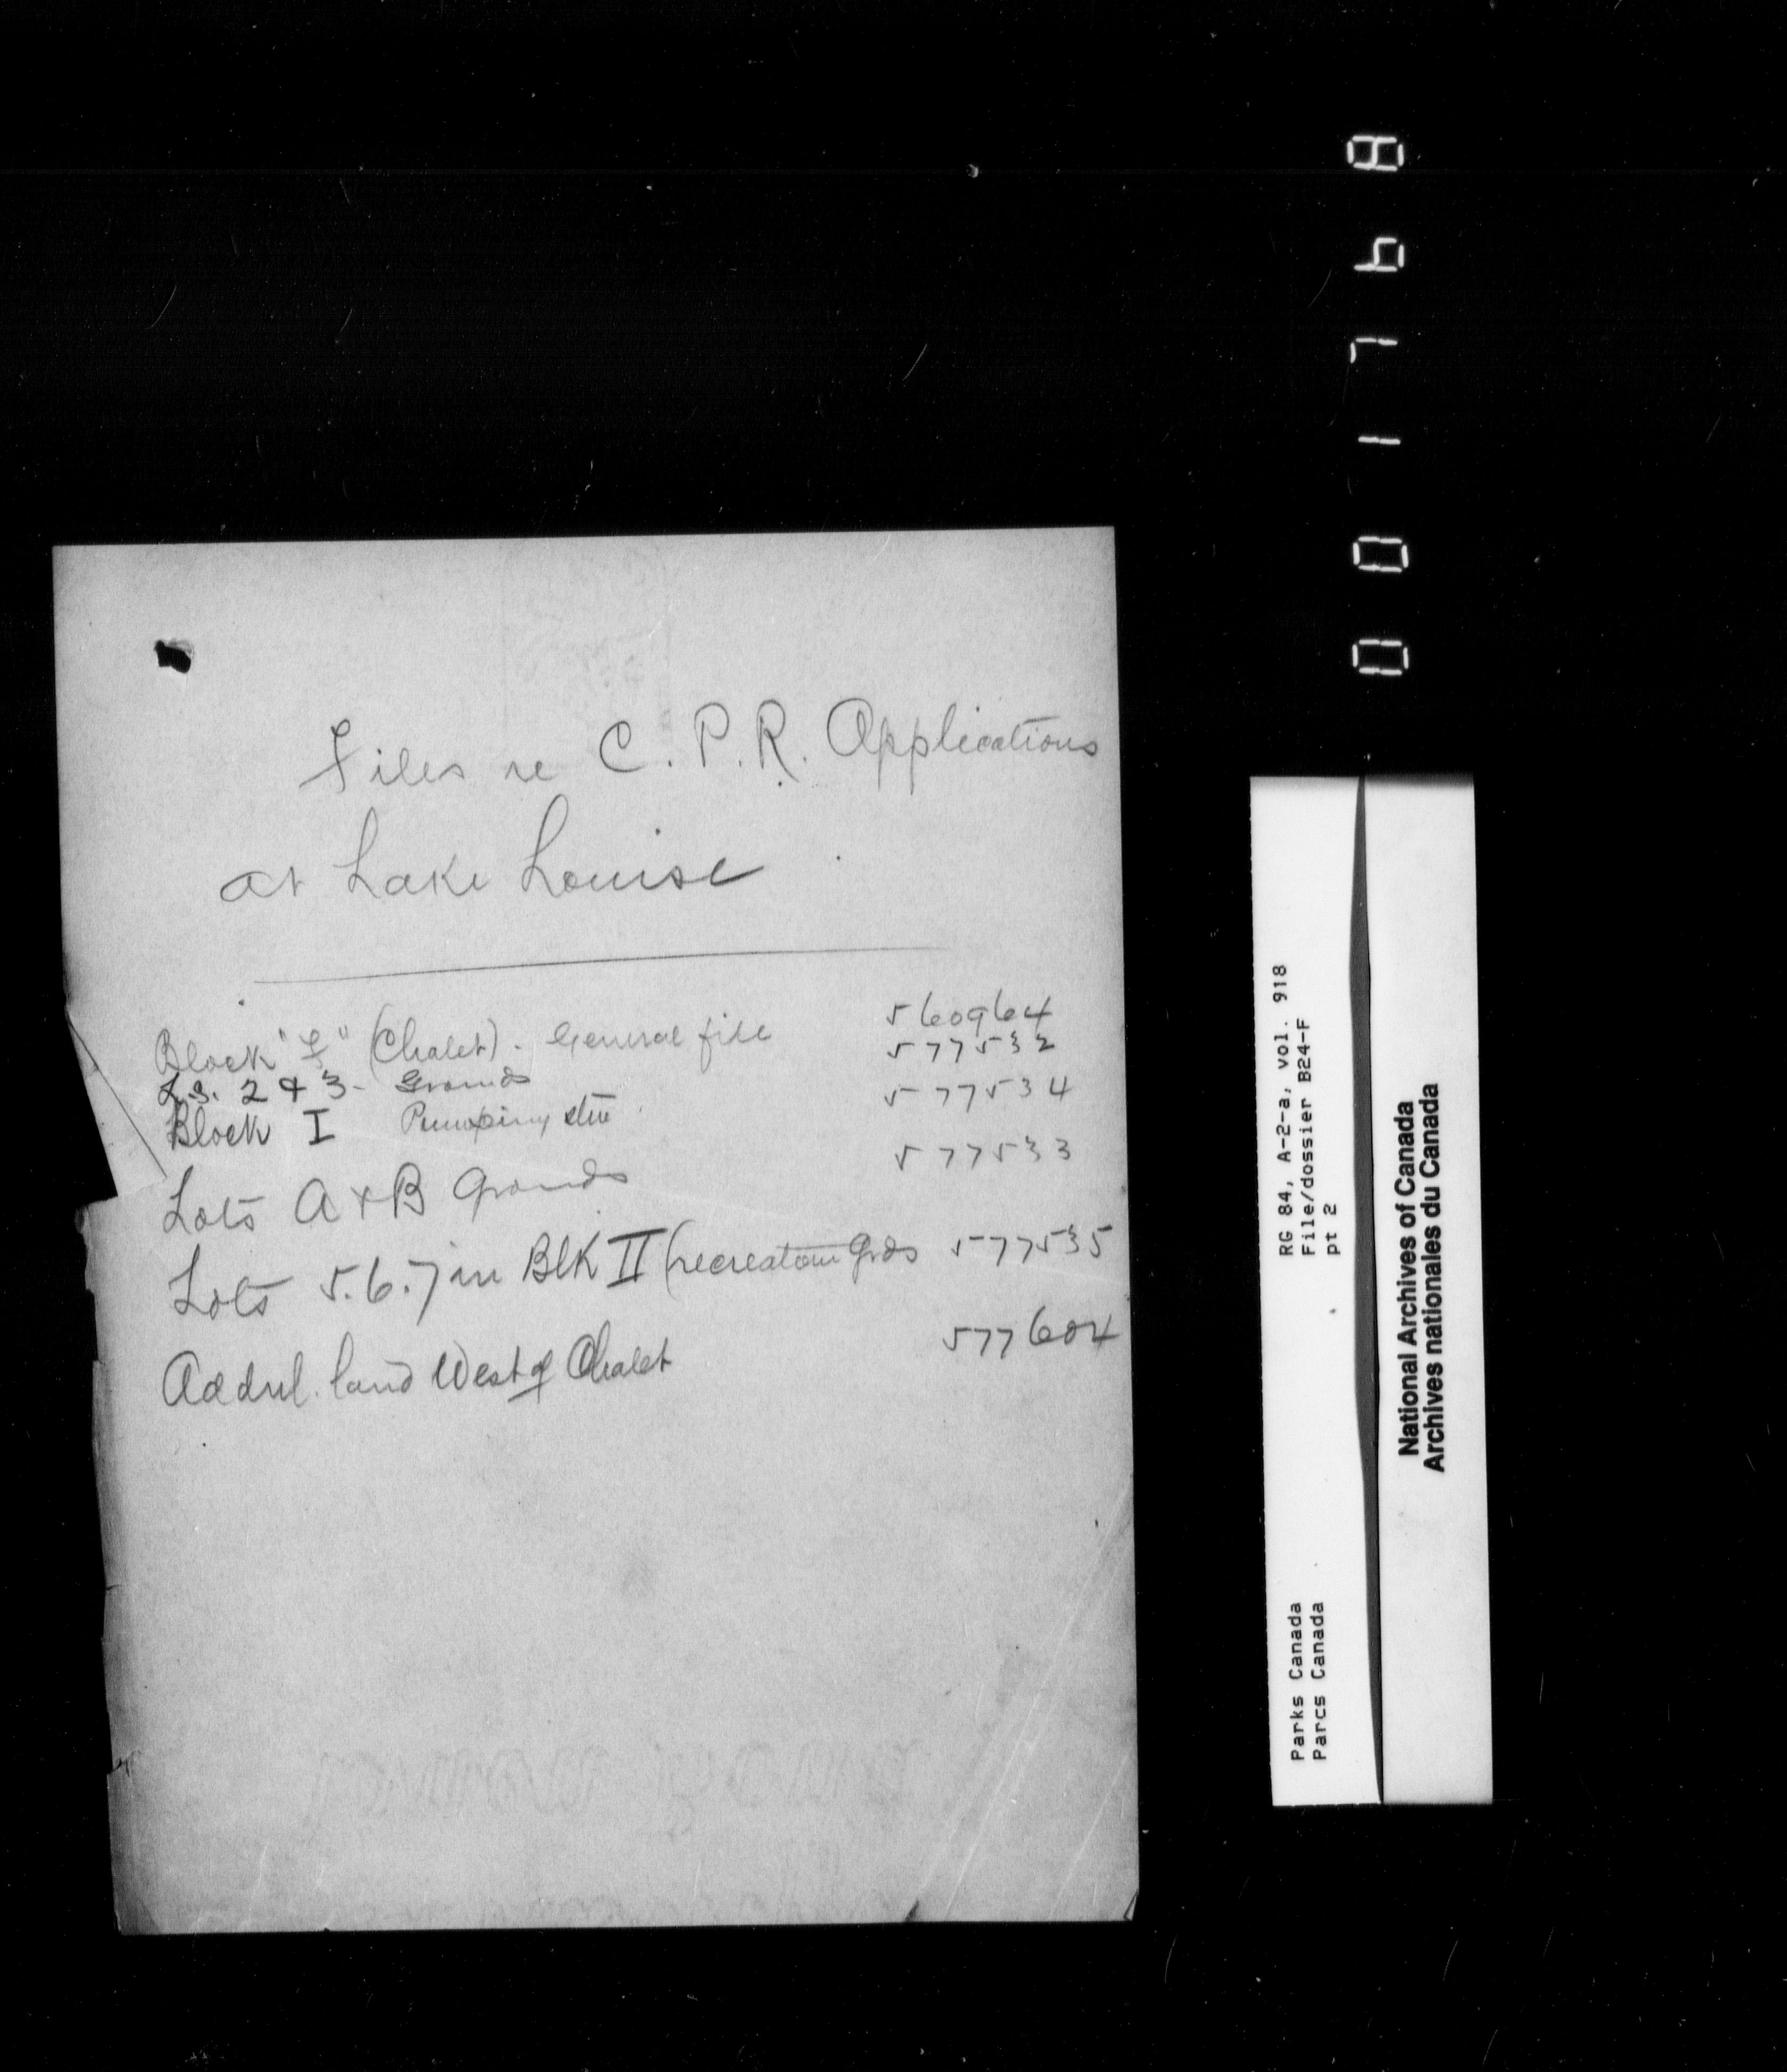 Files re C. P. R. Applications
at Lake Louise
Block "F" (Chalet). General file 560964
L.S. 2 & 3 - Grounds 577532
Block I Pumping site 577534
Lots A & B Grounds 577533
Lots 5. 6. 7 in Blk II (recreation Grds 577535
Addnl. land West of Chalet 577604
001768
RG 84, A-2-a, vol. 918
File/dossier B24-F
pt 2
Parks Canada
Parcs Canada
National Archives of Canada
Archives nationales du Canada